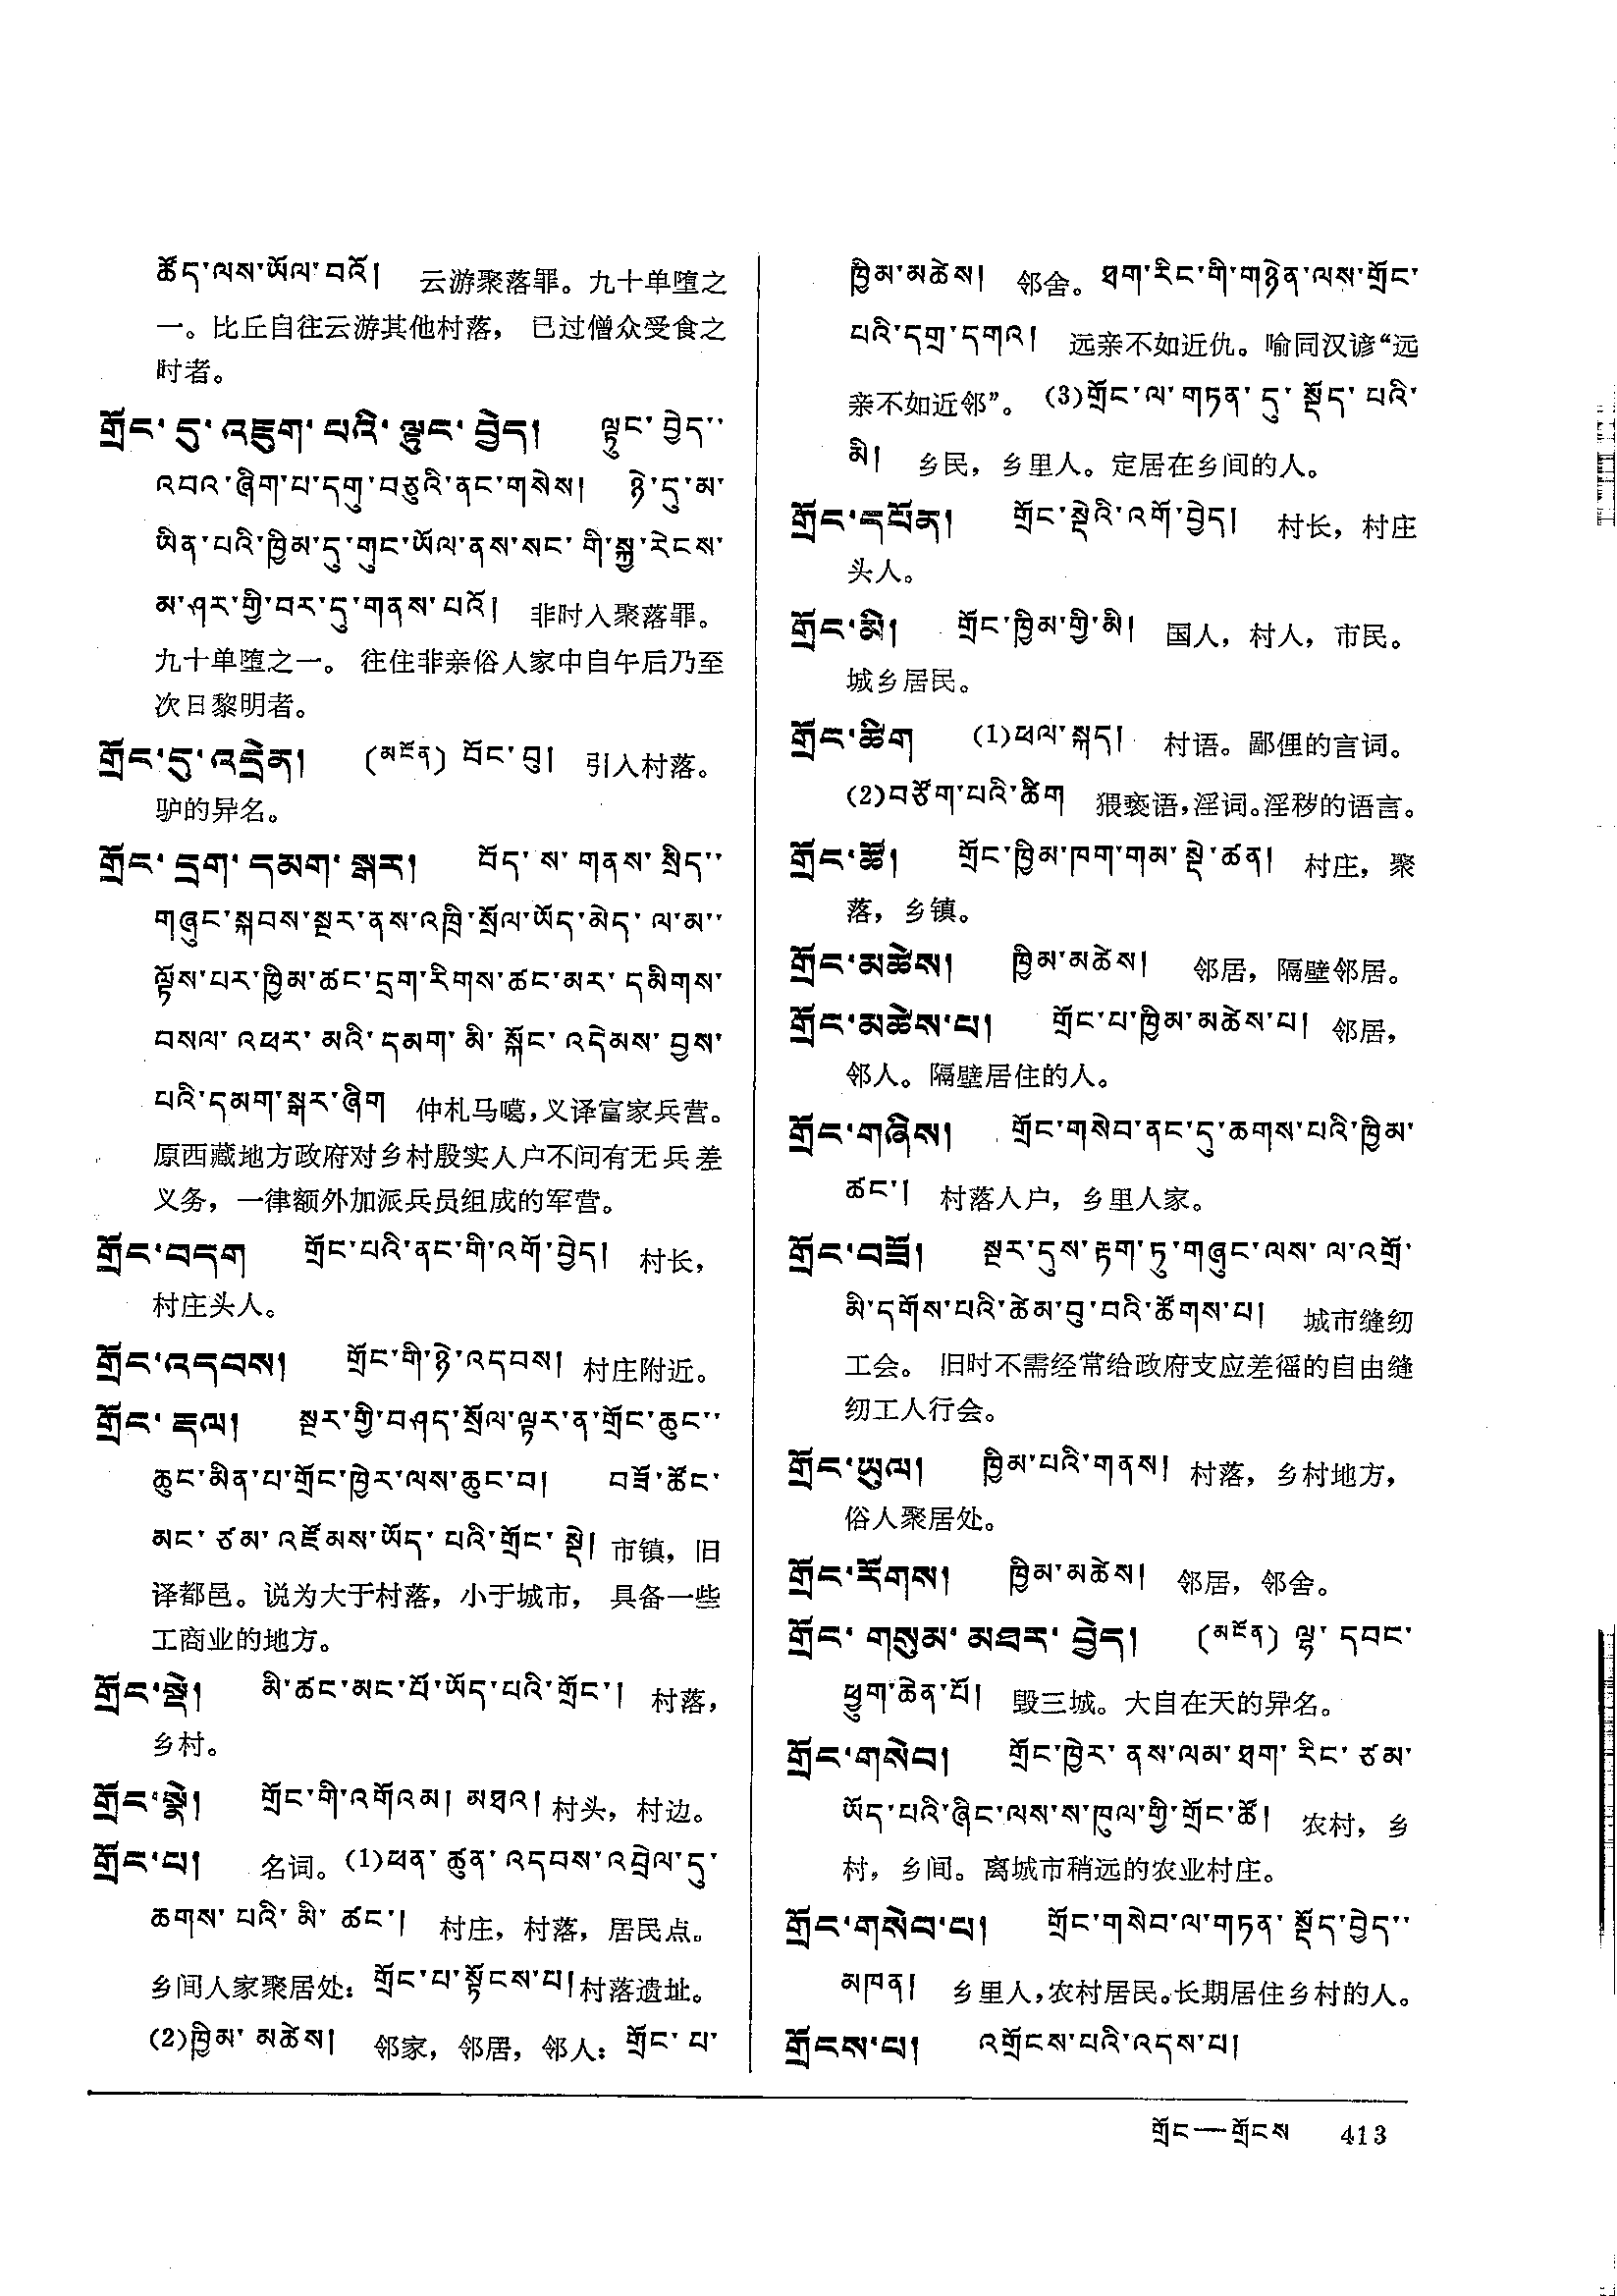 ཚོད་ལས་ཡོལ་བའོ། 云游聚落罪。九十单堕之
一。比丘自往云游其他村落， 已过僧众受食之
时者。
གྲོང་དུ་འཇུག་པའི་ལྟུང་བྱེད། ལྟུང་བྱེད་་
འབའ་ཞིག་པ་དགུ་བཅུའི་ནང་གསེས། ཉེ་དུ་མ་
ཡིན་པའི་ཁྱིམ་དུ་གུང་ཡོལ་ནས་སང་གི་སྐྱ་རེངས་
མ་ཤར་གྱི་བར་དུ་གནས་པའོ། 非时入聚落罪。
九十单堕之一。 往住非亲俗人家中自午后乃至
次日黎明者。
གྲོང་དུ་འདྲེན། (མངོན) བོང་བུ། 引入村落。
驴的异名。
གྲོང་དྲག་དམག་སྒར། བོད་ས་གནས་སྲིད་་
གཞུང་སྐབས་སྔར་ནས་འཁྲི་སྲོལ་ཡོད་མེད་ལ་མ་་
ལྟོས་པར་ཁྱིམ་ཚང་དྲག་རིགས་ཚང་མར་དམིགས་
བསལ་འཕར་མའི་དམག་མི་སྐོང་འདེམས་བྱས་
པའི་དམག་སྒར་ཞིག 仲札马噶,义译富家兵营。
原西藏地方政府对乡村殷实人户不问有无兵差
义务，一律额外加派兵员组成的军营。
གྲོང་བདག གྲོང་པའི་ནང་གི་འགོ་བྱེད། 村长，
村庄头人。
གྲོང་འདབས། གྲོང་གི་ཉེ་འདབས། 村庄附近。
གྲོང་རྡལ། སྔར་གྱི་བཤད་སྲོལ་ལྟར་ན་གྲོང་ཆུང་་
ཆུང་མིན་པ་གྲོང་ཁྱེར་ལས་ཆུང་བ། བཟོ་ཚོང་
མང་ཙམ་འཛོམས་ཡོད་པའི་གྲོང་སྡེ། 市镇，旧
译都邑。说为大于村落，小于城市， 具备一些
工商业的地方。
གྲོང་སྡེ། མི་ཚང་མང་པོ་ཡོད་པའི་གྲོང་། 村落，
乡村。
གྲོང་སྣེ། གྲོང་གི་འགོའམ། མཐའ། 村头，村边。
གྲོང་པ། 名词。(1)ཕན་ཚུན་འདབས་འབྲེལ་དུ་
ཆགས་པའི་མི་ཚང་། 村庄，村落，居民点。
乡间人家聚居处：གྲོང་པ་སྟོངས་པ། 村落遗址。
(2)ཁྱིམ་མཚེས། 邻家，邻居，邻人：གྲོང་པ་
ཁྱིམ་མཚེས། 邻舍。ཐག་རིང་གི་གཉེན་ལས་གྲོང་
པའི་དགྲ་དགའ། 远亲不如近仇。喻同汉谚“远
亲不如近邻”。(3)གྲོང་ལ་གཏན་དུ་སྡོད་པའི་
མི། 乡民，乡里人。定居在乡间的人。
གྲོང་དཔོན། གྲོང་སྡེའི་འགོ་བྱེད། 村长，村庄
头人。
གྲོང་མི། གྲོང་ཁྱིམ་གྱི་མི། 国人，村人，市民。
城乡居民。
གྲོང་ཚིག (1)ཕལ་སྐད། 村语。鄙俚的言词。
(2)བཙོག་པའི་ཚིག 猥亵语,淫词。淫秽的语言。
གྲོང་ཚོ། གྲོང་ཁྱིམ་ཁག་གམ་སྡེ་ཚན། 村庄，聚
落，乡镇。
གྲོང་མཚེས། ཁྱིམ་མཚེས། 邻居，隔壁邻居。
གྲོང་མཚེས་པ། གྲོང་པ་ཁྱིམ་མཚེས་པ། 邻居，
邻人。隔壁居住的人。
གྲོང་གཞིས། གྲོང་གསེབ་ནང་དུ་ཆགས་པའི་ཁྱིམ་
ཚང་། 村落人户，乡里人家。
གྲོང་བཟོ། སྔར་དུས་རྟག་ཏུ་གཞུང་ལས་ལ་འགྲོ་
མི་དགོས་པའི་ཚེམ་བུ་བའི་ཚོགས་པ། 城市缝纫
工会。 旧时不需经常给政府支应差徭的自由缝
纫工人行会。
གྲོང་ཡུལ། ཁྱིམ་པའི་གནས། 村落，乡村地方，
俗人聚居处。
གྲོང་རོགས། ཁྱིམ་མཚེས། 邻居，邻舍。
གྲོང་གསུམ་མཐར་བྱེད། (མངོན) ལྷ་དབང་
ཕྱུག་ཆེན་པོ། 毁三城。大自在天的异名。
གྲོང་གསེབ། གྲོང་ཁྱེར་ནས་ལམ་ཐག་རིང་ཙམ་
ཡོད་པའི་ཞིང་ལས་ས་ཁུལ་གྱི་གྲོང་ཚོ། 农村，乡
村，乡间。离城市稍远的农业村庄。
གྲོང་གསེབ་པ། གྲོང་གསེབ་ལ་གཏན་སྡོད་བྱེད་་
མཁན། 乡里人,农村居民。长期居住乡村的人。
གྲོངས་པ། འགྲོངས་པའི་འདས་པ།
གྲོང—གྲོངས 413